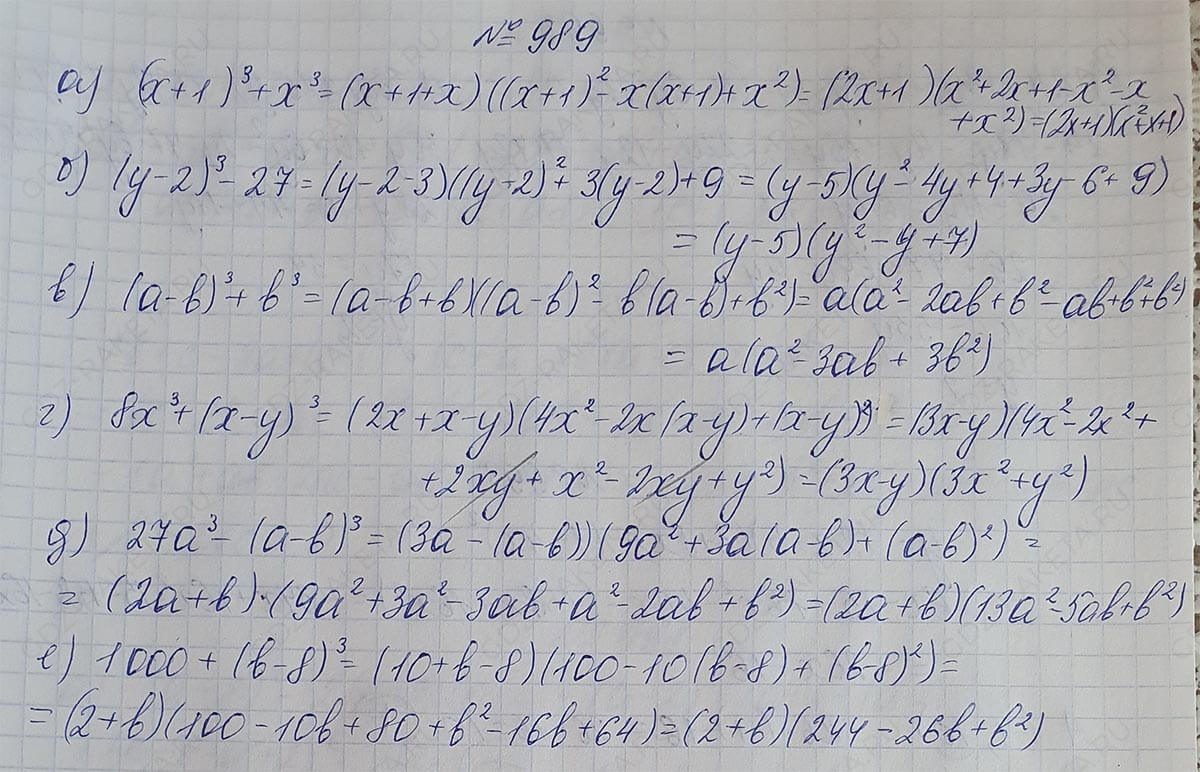 № 989
а) (x+1)³+x³=(x+1+x)((x+1)²-x(x+1)+x²)=(2x+1)(x²+2x+1-x²-x
+x²)=(2x+1)(x²+x+1)
б) (y-2)³-27=(y-2-3)((y-2)²+3(y-2)+9=(y-5)(y²-4y+4+3y-6+9)
=(y-5)(y²-y+7)
в) (a-b)³+b³=(a-b+b)((a-b)²-b(a-b)+b²)=a(a²-2ab+b²-ab+b²+b²)
=a(a²-3ab+3b²)
г) 8x³+(x-y)³=(2x+x-y)(4x²-2x(x-y)+(x-y)²)=(3x-y)(4x²-2x²+
+2xy+x²-2xy+y²)=(3x-y)(3x²+y²)
д) 27a³-(a-b)³=(3a-(a-b))(9a²+3a(a-b)+(a-b)²)=
=(2a+b)·(9a²+3a²-3ab+a²-2ab+b²)=(2a+b)(13a²-5ab+b²)
е) 1000+(b-8)³=(10+b-8)(100-10(b-8)+(b-8)²)=
=(2+b)(100-10b+80+b²-16b+64)=(2+b)(244-26b+b²)